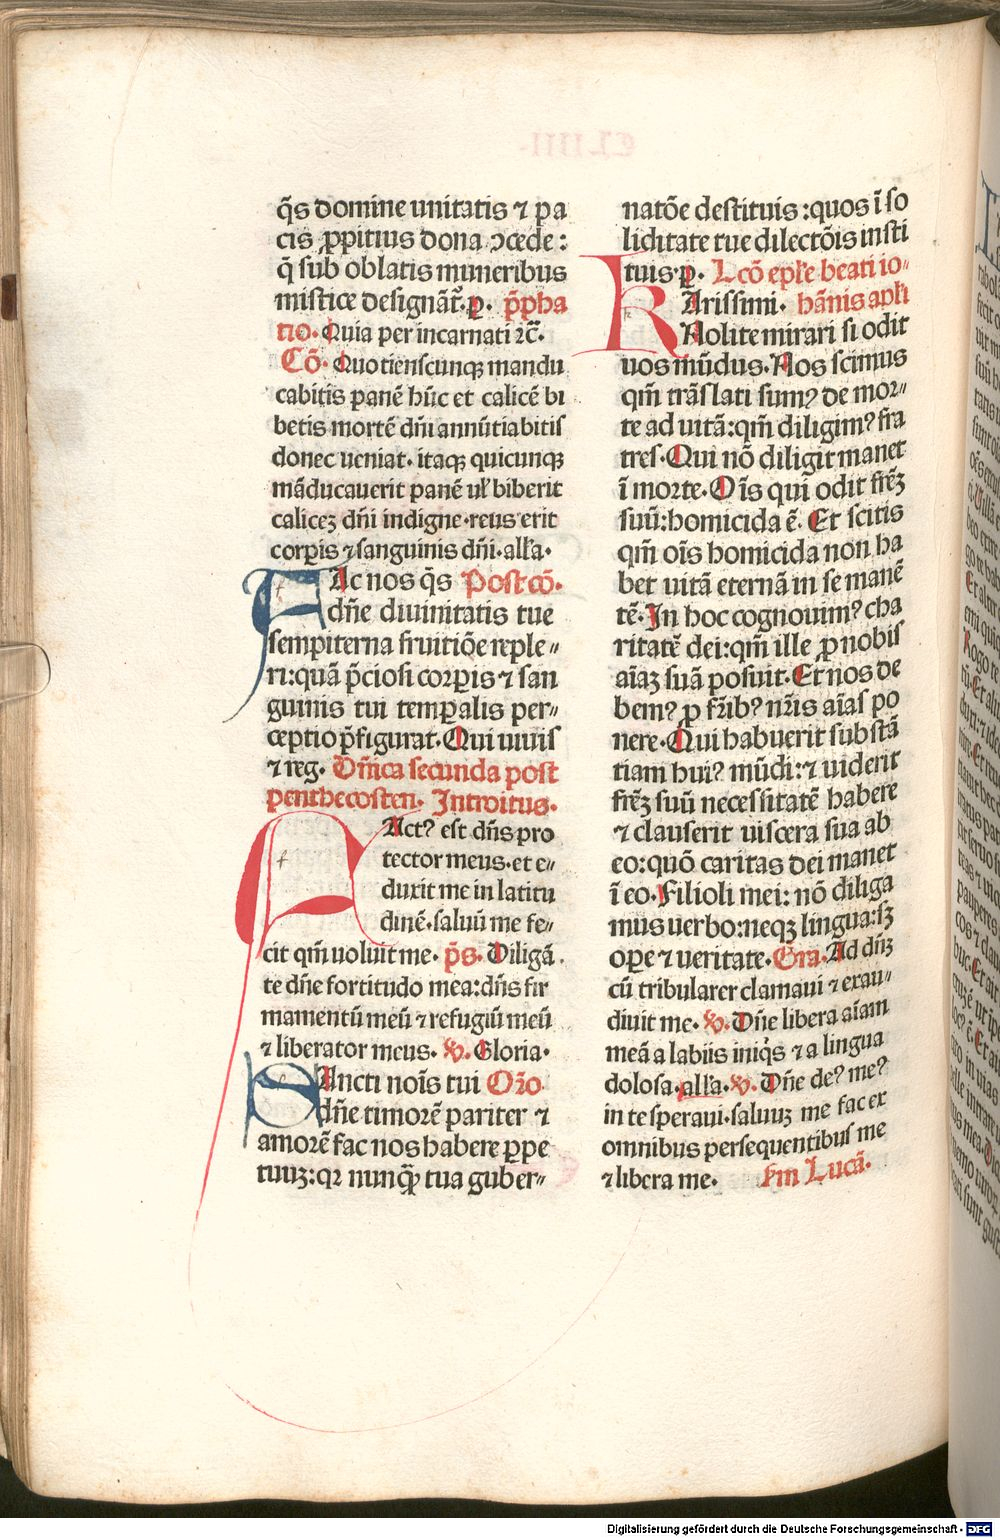 q̄s domine unitatis ⁊ pa
cis ꝓpitius dona ↄcede :
q̄ sub oblatis muneribus
mistice designāt᷑.ꝑ. p̄pha
tio. Quia per incarnati ⁊c̄.
Cō. Quotienscunqꝫ mandu
cabitis panē hūc et calicē bi
betis mortē dn̄i annūtiabitis
donec ueniat. itaqꝫ quicunqꝫ
māducauerit panē uł biberit
caliceꝫ dn̄i indigne.reus erit
corꝑis ⁊ sanguinis dn̄i.alła.
FAc nos q̄s Post cō.
dn̄e diuinitatis tue
sempiterna fruitiōe reple⸗
ri:quā p̄ciosi corꝑis ⁊ san
guinis tui temꝑalis per⸗
ceptio p̄figurat. Qui uiuis
⁊ reg. Dn̄ica secunda post
penthecosten. Introitus.
FActꝰ est dn̄s pro
tector meus.et e⸗
duxit me in latitu
dinē.saluū me fe⸗
cit qm̄ uoluit me. p̄s. Diligā.
te dn̄e fortitudo mea:dn̄s fir
mamentū meū ⁊ refugiū meū
⁊ liberator meus. ℣. Gloria.
SAncti noīs tui Orō
dn̄e timorē pariter ⁊
amorē fac nos habere ꝑpe
tuuꝫ:qꝛ nunq̄ꝫ tua guber⸗
natōe destituis:quos ī so
liditate tue dilectōis insti
tuis.ꝑ. Lcō epłe beati io⸗
KArissimi. hānis apłi
Nolite mirari si odit
uos mūdus. Nos scimus
qm̄ trāslati sumꝰ de mor⸗
te ad uitā:qm̄ diligimꝰ fra
tres. Qui nō diligit manet
ī morte. Oīs qui odit frēꝫ
suū:homicida ē. Et scitis
qm̄ oīs homicida non ha
bet uitā eternā in se manē
tē. In hoc cognouimꝰ cha
ritatē dei:qm̄ ille ꝓ nobis
aīaꝫ suā posuit. Et nos de
bemꝰ ꝓ fr̄ibꝰ nr̄is aīas po
nere. Qui habuerit substā
tiam huiꝰ mūdi:⁊ uiderit
frēꝫ suū necessitatē habere
⁊ clauserit uiscera sua ab
eo:quō caritas dei manet
ī eo. Filioli mei: nō diliga
mus uerbo:neqꝫ lingua:sꝫ
oꝑe ⁊ ueritate. Gra. Ad dn̄ꝫ
cū tribularer clamaui ⁊ exau⸗
diuit me. ℣. Dn̄e libera aīam
meā a labiis iniq̄s ⁊ a lingua
dolosa.alła.℣. Dn̄e deꝰ meꝰ
in te speraui.saluuꝫ me fac ex
omnibus persequentibus me
⁊ libera me. Fm Lucā.
Digitalisierung gefördert durch die Deutsche Forschungsgemeinschaft - DFG